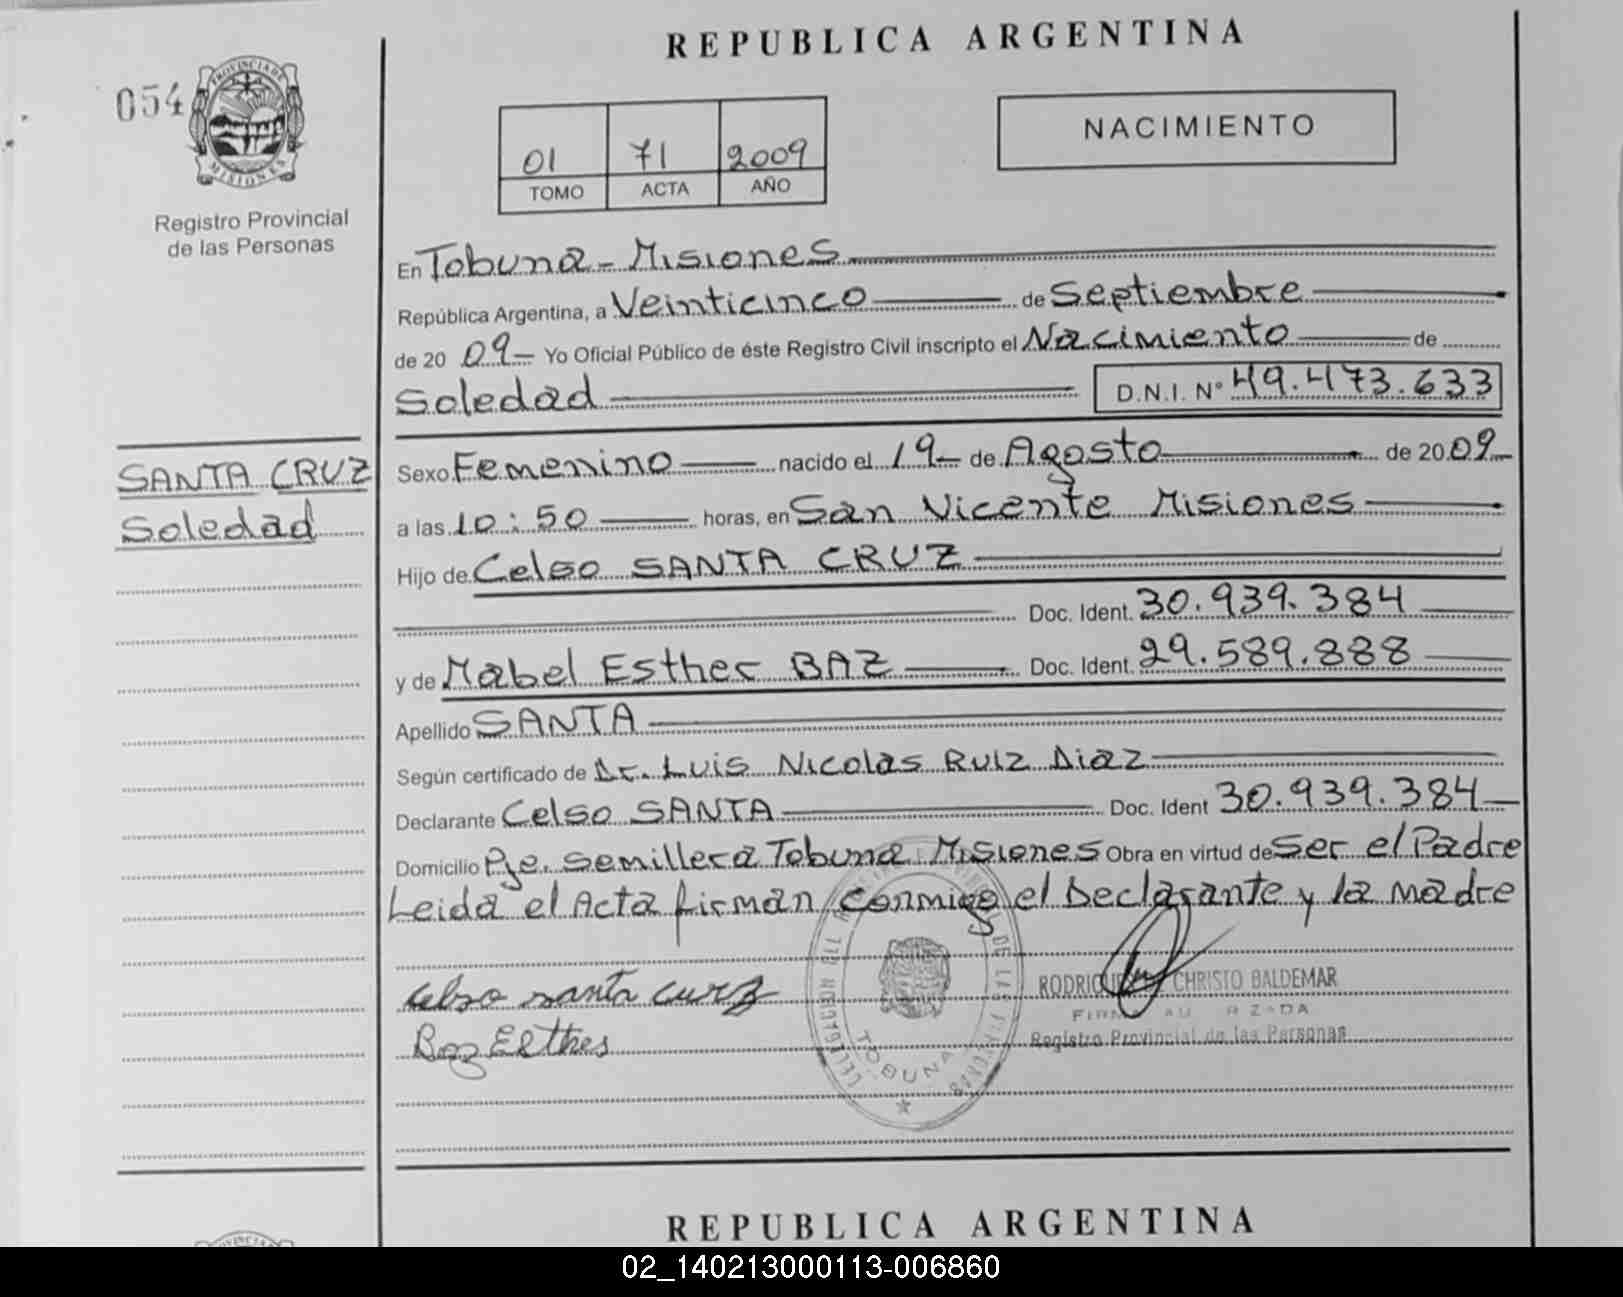 REPUBLICA ARGENTINA
054
PROVINCIA DE
MISIONES
Registro Provincial
de las Personas
01 71 2009
TOMO ACTA AÑO
NACIMIENTO
En Tobuna - Misiones
República Argentina, a Veinticinco de Septiembre
de 20 09 Yo Oficial Público de éste Registro Civil inscripto el Nacimiento de
Soledad D.N.I. Nº 49.473.633
SANTA CRUZ
Soledad
Sexo Femenino nacido el 19 de Agosto de 20 09
a las 10:50 horas, en San Vicente Misiones
Hijo de Celso SANTA CRUZ
Doc. Ident. 30.939.384
y de Mabel Esther BAZ Doc. Ident. 29.589.888
Apellido SANTA
Según certificado de Dr. Luis Nicolas Ruiz Diaz
Declarante Celso SANTA Doc. Ident 30.939.384
Domicilio Pje. Semillera Tobuna Misiones Obra en virtud de Ser el Padre
Leida el Acta firman conmigo el Declarante y la Madre
celso santa curz
Baz Esther
CHRISTO BALDEMAR
Registro Provincial de las Personas
DE LAS PERSONAS
TOBUNA
REPUBLICA ARGENTINA
02_140213000113-006860